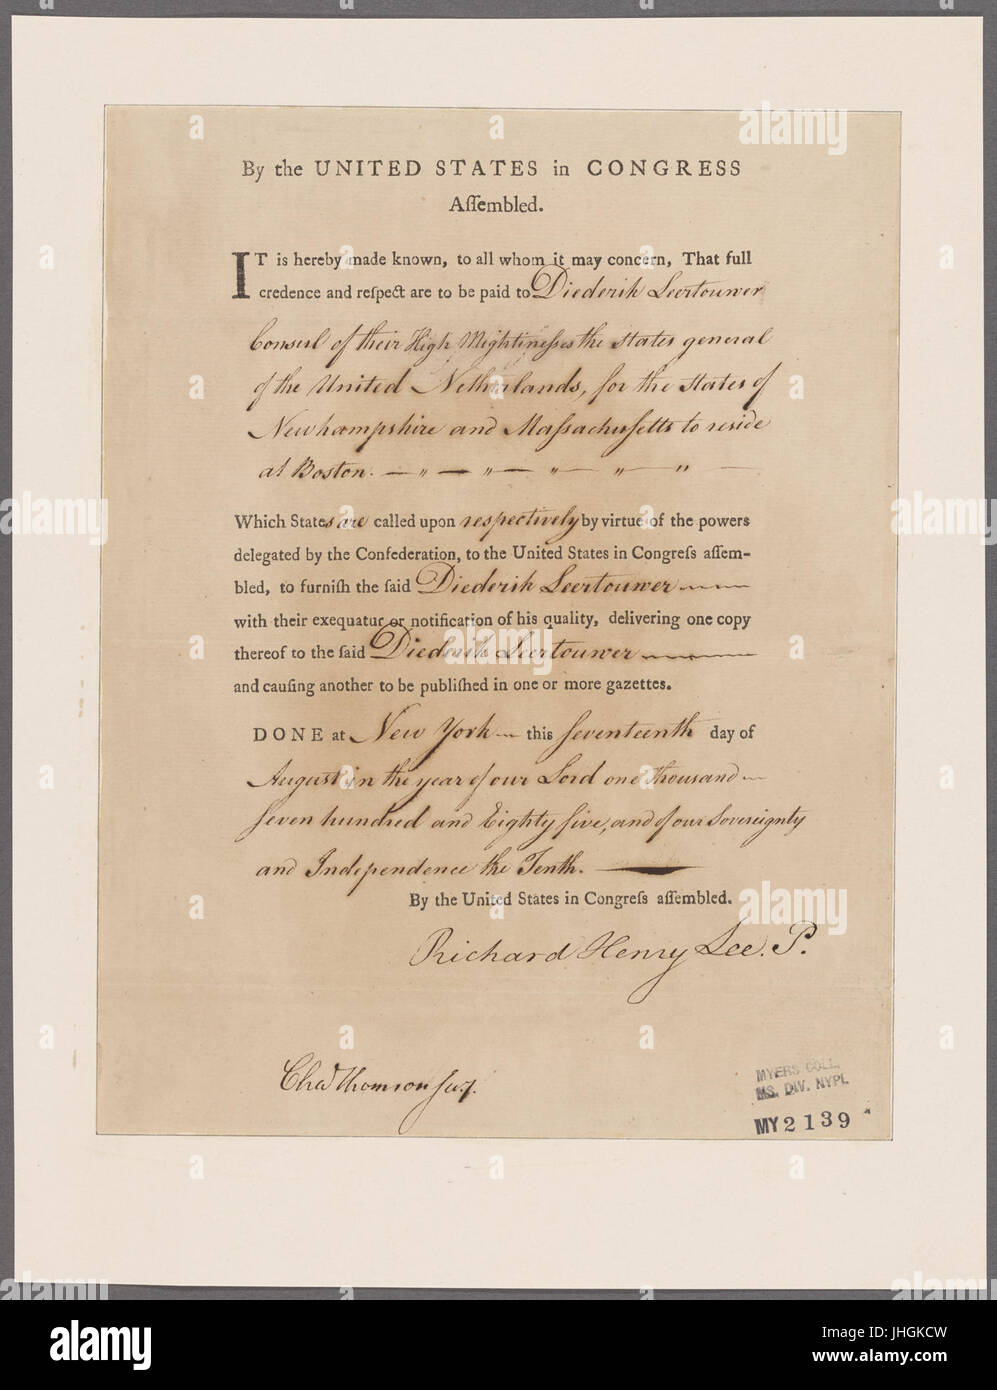 By the UNITED STATES in CONGRESS
Aſſembled.
IT is hereby made known, to all whom it may concern, That full
credence and reſpect are to be paid to Diederik Leertouwer
Consul of their High Mightineſses the States general
of the United Netherlands, for the States of
Newhampshire and Maſsachuſetts to reside
at Boston. — " — " — " — " — " —
Which States are called upon respectively by virtue of the powers
delegated by the Confederation, to the United States in Congreſs aſſem-
bled, to furniſh the ſaid Diederik Leertouwer
with their exequatur or notification of his quality, delivering one copy
thereof to the ſaid Diederik Leertouwer
and cauſing another to be publiſhed in one or more gazettes.
DONE at New York — this ſeventeenth day of
August in the year of our Lord one thousand —
ſeven hundred and Eighty five, and of our Sovereignty
and Independence the Tenth. —
By the United States in Congreſs aſſembled.
Richard Henry Lee. P.
Chaˢ Thomson ſecy.
MYERS COLL.
MS. DIV. NYPL
MY2139
alamy
Image ID: JHGKCW
www.alamy.com